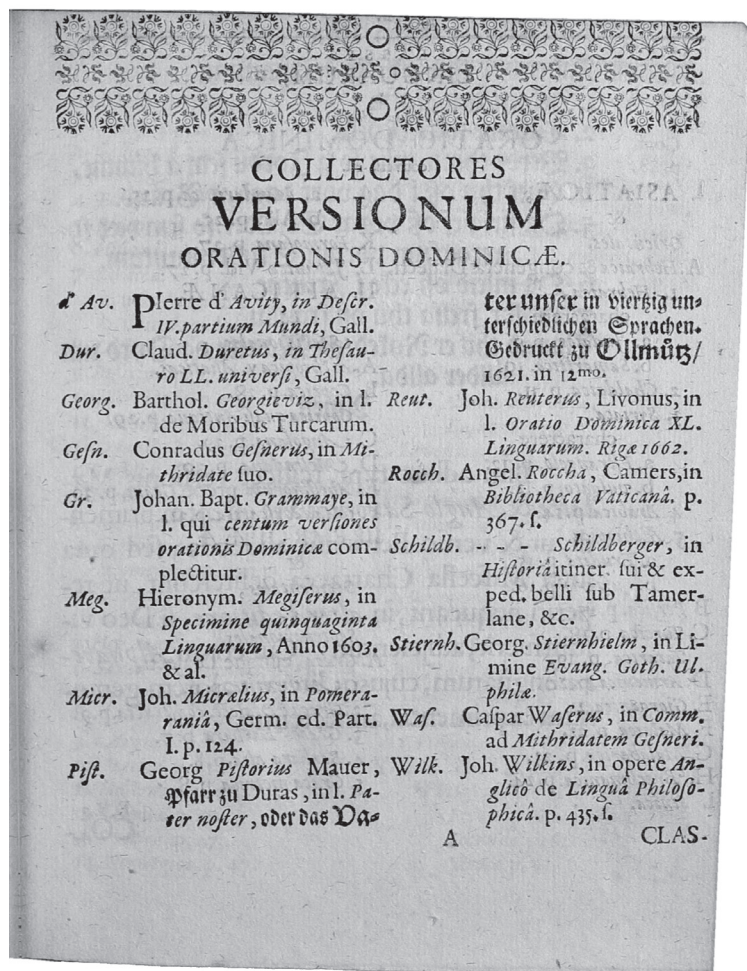 COLLECTORES
VERSIONUM
ORATIONIS DOMINICÆ.
d' Av. PIerre d' Avity, in Deſcr.
IV. partium Mundi, Gall.
Dur. Claud. Duretus, in Theſau-
ro LL. univerſi, Gall.
Georg. Barthol. Georgieviz, in l.
de Moribus Turcarum.
Geſn. Conradus Geſnerus, in Mi-
thridate ſuo.
Gr. Johan. Bapt. Grammaye, in
l. qui centum verſiones
orationis Dominicæ com-
plectitur.
Meg. Hieronym. Megiſerus, in
Specimine quinquaginta
Linguarum, Anno 1603.
& al.
Micr. Joh. Micrælius, in Pomera-
raniâ, Germ. ed. Part.
I. p. 124.
Piſt. Georg Piſtorius Mauer,
Pfarr zu Duras, in l. Pa-
ter noſter, oder das Va-
ter unſer in viertzig un-
terſchiedlichen Sprachen.
Gedruckt zu Ollmütz/
1621. in 12mo.
Reut. Joh. Reuterus, Livonus, in
l. Oratio Dominica XL.
Linguarum. Rigæ 1662.
Rocch. Angel. Roccha, Camers, in
Bibliotheca Vaticanâ. p.
367. ſ.
Schildb. - - - Schildberger, in
Hiſtoriâ itiner. ſui & ex-
ped. belli ſub Tamer-
lane, &c.
Stiernh. Georg. Stiernhielm, in Li-
mine Evang. Goth. Ul.
philæ.
Waſ. Caſpar Waſerus, in Comm.
ad Mithridatem Geſneri.
Wilk. Joh. Wilkins, in opere An-
glicô de Linguâ Philoſo-
phicâ. p. 435. ſ.
A CLAS-